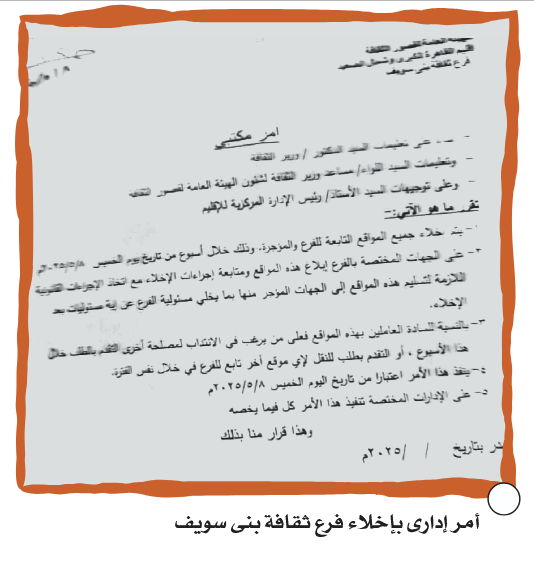 الهيئة العامة لقصور الثقافة
إقليم القاهرة الكبرى وشمال الصعيد
فرع ثقافة بنى سويف
أمر مكتبي
- على تعليمات السيد الدكتور / وزير الثقافة
- وتعليمات السيد اللواء/ مساعد وزير الثقافة لشئون الهيئة العامة لقصور الثقافة
- وعلى توجيهات السيد الأستاذ/ رئيس الإدارة المركزية للإقليم
تقرر ما هو الآتي:-
١- يتم خلاء جميع المواقع التابعة للفرع والمؤجرة. وذلك خلال أسبوع من تاريخ يوم الخميس ٢٠٢٥/٥/٨م
٢- على الجهات المختصة بالفرع إبلاغ هذه المواقع ومتابعة إجراءات الإخلاء مع اتخاذ الإجراءات القانونية
اللازمة لتسليم هذه المواقع إلى الجهات المؤجر منها بما يخلي مسئولية الفرع عن إية مسئوليات بعد
الإخلاء.
٣- بالنسبة للسادة العاملين بهذه المواقع فعلى من يرغب في الانتداب لمصلحة أخرى التقدم بالطلب خلال
هذا الأسبوع ، أو التقدم بطلب للنقل لإي موقع أخر تابع للفرع في خلال نفس الفترة.
٤- ينفذ هذا الأمر اعتبارا من تاريخ اليوم الخميس ٢٠٢٥/٥/٨م
٥- على الإدارات المختصة تنفيذ هذا الأمر كل فيما يخصه
وهذا قرار منا بذلك
بتاريخ / /٢٠٢٥م
أمر إدارى بإخلاء فرع ثقافة بنى سويف